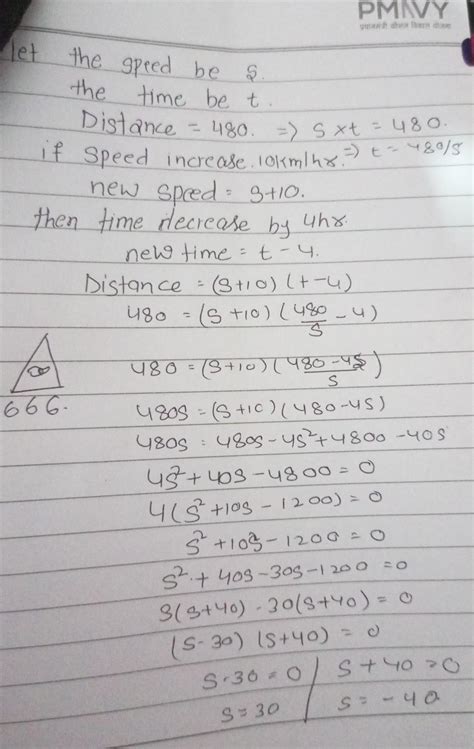 PMMVY
प्रधानमंत्री श्रीमान विकास योजना
let the speed be s.
the time be t.
Distance = 480. => s x t = 480.
if Speed increase 10km/hr. => t = 480/s
new speed = s+10.
then time decrease by 4hr.
new time = t - 4.
Distance = (s+10) (t-4)
480 = (s+10) (480/s - 4)
480 = (s+10) ((480-4s)/s)
666. 480s = (s+10) (480-4s)
480s = 480s - 4s² + 4800 - 40s
4s² + 40s - 4800 = 0
4(s² + 10s - 1200) = 0
s² + 10s - 1200 = 0
s² + 40s - 30s - 1200 = 0
s(s+40) - 30(s+40) = 0
(s-30) (s+40) = 0
s-30 = 0 | s + 40 = 0
s = 30 | s = -40